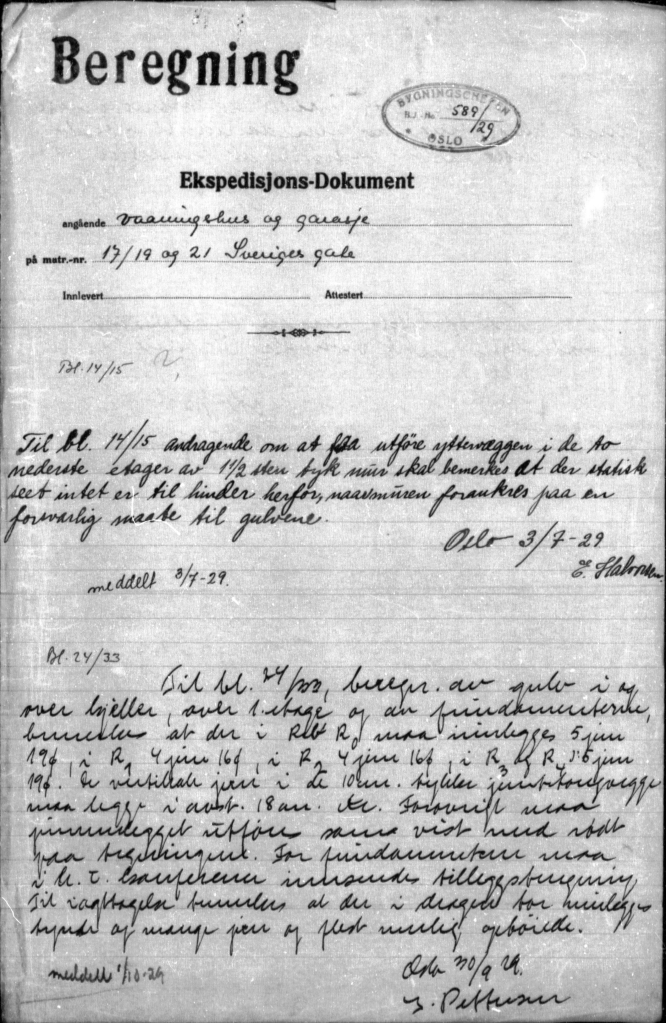 Beregning
BYGNINGSCHEFEN
B.J.-No. 589/29
OSLO
Ekspedisjons-Dokument
angående vaaningshus og garasje
på matr.-nr. 17/19 og 21 Sveriges gate
Innlevert Attestert
Bl. 14/15
Til bl. 14/15 andragende om at faa utføre yttervæggen i de to
nederste etager av 1 1/2 sten tyk mur skal bemerkes at der statisk
seet intet er til hinder herfor, naar muren forankres paa en
forsvarlig maate til gulvene.
Oslo 3/7-29
E. Halvorsen
meddelt 3/7-29.
Bl. 24/33
Til bl. 24/33, beregn. av gulv i og
over kjeller, over 1. etage og av fundamenterne,
bemerkes at der i R maa innlegges 5 jern
19ϕ, i R 4 jern 16ϕ, i R 4 jern 16ϕ, i R3 og R 5 jern
19ϕ. De vertikale jern i de 10 cm. tykke jernbetongvegge
maa legges i avst. 18 cm. Forøvrig maa
jerninnlegget utføres som vist med rødt
paa tegningene. For fundamentene maa
i h. t. konferense innsendes tilleggsberegning
Til iagttagelse bemerkes at der i dragere bør innlegges
tynde og mange jern og flest mulig opbøiede.
Oslo 30/9 29.
Pettersen
meddelt 1/10-29